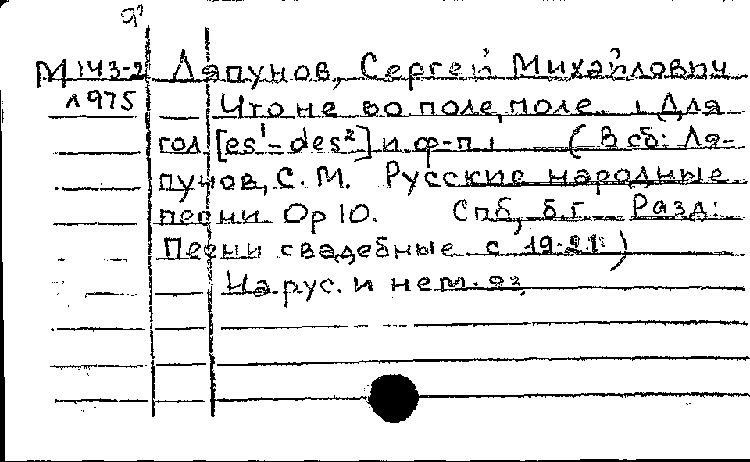 М 143-2 Ляпунов, Сергей Михайлович
1975 Что не во поле, поле. Для
гол. [es¹-des²] и ф-п. (В сб: Ля-
пунов, С. М. Русские народные
песни. Ор 10. Спб, б.г. Разд:
Песни свадебные с 19-21)
На рус. и нем. яз.